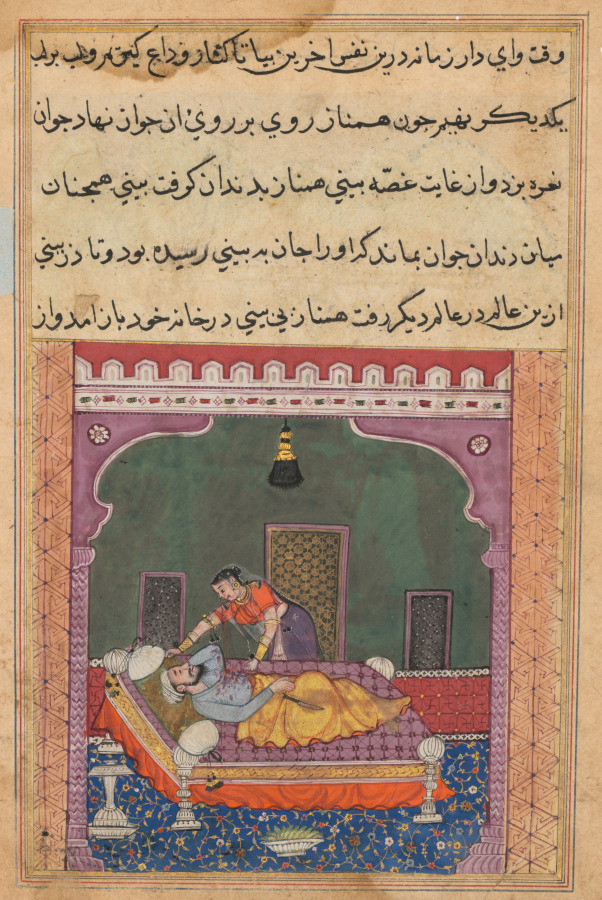 وقت وای دار زمانه درین نفس اخرین بیا تا کنار و وداع کنیم و لب بر لب
یکدیکر نهیم چون همناز روی بر روی ان جوان نهاد جوان
نعره بزد و از غایت غصّه بینی همناز بدندان کرفت بینی همچنان
میان دندان جوان بماند کر او را جان به بینی رسیده بود و تا در بینی
ازین عالم در عالم دیکر رفت همناز بی بینی در خانه خود باز امد و از